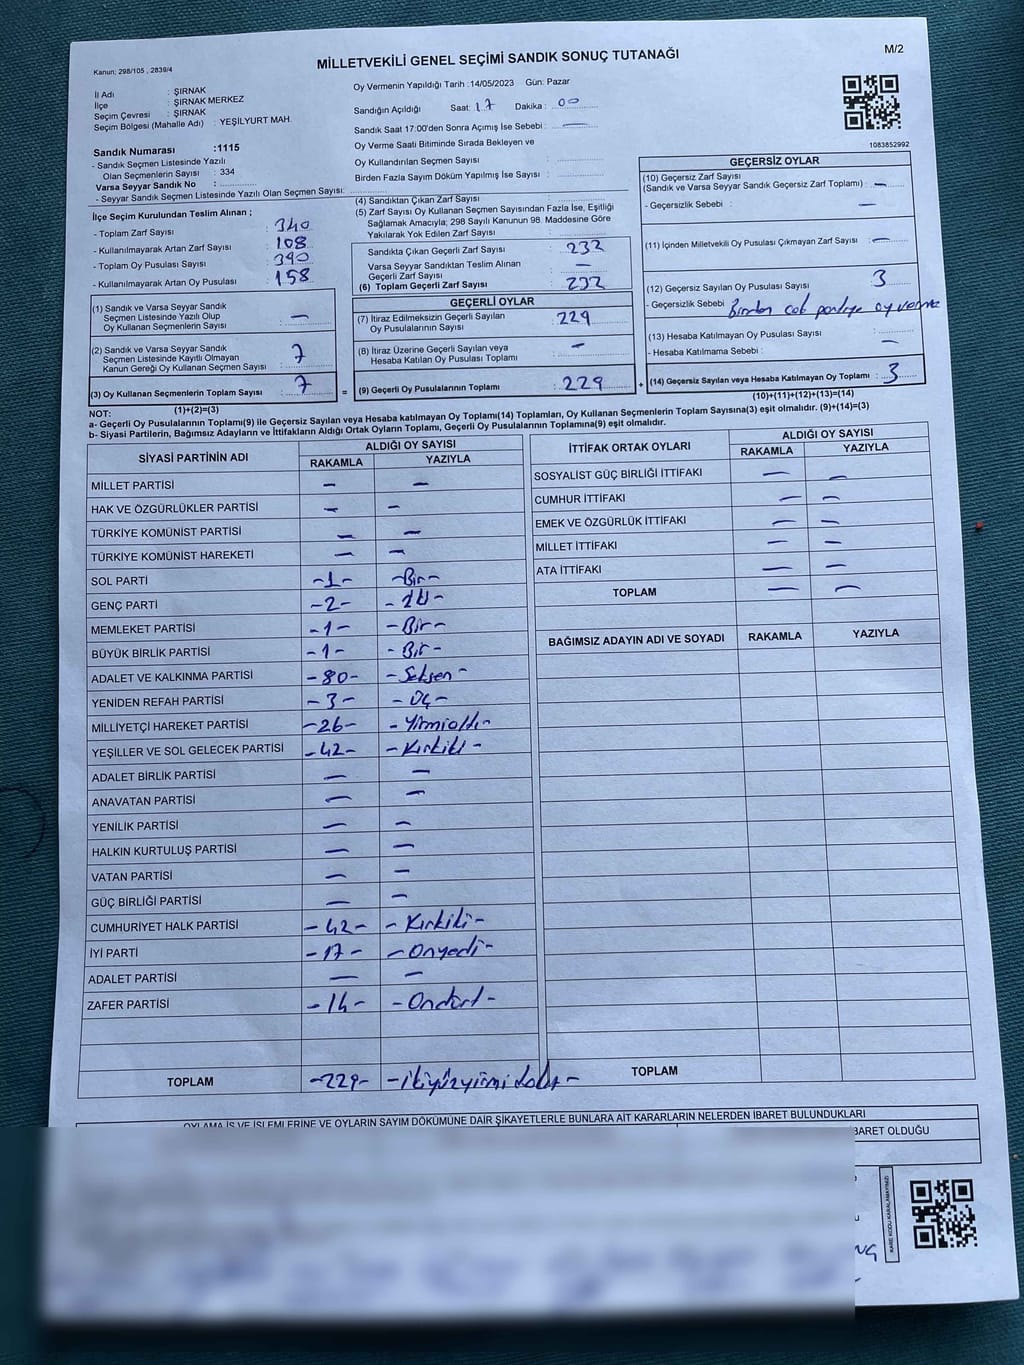 M/2
Kanun; 298/105 , 2839/4
MİLLETVEKİLİ GENEL SEÇİMİ SANDIK SONUÇ TUTANAĞI
İl Adı : ŞIRNAK
İlçe : ŞIRNAK MERKEZ
Seçim Çevresi : ŞIRNAK
Seçim Bölgesi (Mahalle Adı) : YEŞİLYURT MAH.
Sandık Numarası :1115
- Sandık Seçmen Listesinde Yazılı
Olan Seçmenlerin Sayısı : 334
Varsa Seyyar Sandık No :
- Seyyar Sandık Seçmen Listesinde Yazılı Olan Seçmen Sayısı:
İlçe Seçim Kurulundan Teslim Alınan ;
- Toplam Zarf Sayısı : 340
- Kullanılmayarak Artan Zarf Sayısı : 108
- Toplam Oy Pusulası Sayısı : 390
- Kullanılmayarak Artan Oy Pusulası : 158
(1) Sandık ve Varsa Seyyar Sandık
Seçmen Listesinde Yazılı Olup
Oy Kullanan Seçmenlerin Sayısı : —
(2) Sandık ve Varsa Seyyar Sandık
Seçmen Listesinde Kayıtlı Olmayan
Kanun Gereği Oy Kullanan Seçmen Sayısı : 7
(3) Oy Kullanan Seçmenlerin Toplam Sayısı : 7
(1)+(2)=(3)
Oy Vermenin Yapıldığı Tarih :14/05/2023 Gün: Pazar
Sandığın Açıldığı Saat: 17 Dakika : 00
Sandık Saat 17:00'den Sonra Açımış İse Sebebi : —
Oy Verme Saati Bitiminde Sırada Bekleyen ve
Oy Kullandırılan Seçmen Sayısı :
Birden Fazla Sayım Döküm Yapılmış İse Sayısı :
(4) Sandıktan Çıkan Zarf Sayısı :
(5) Zarf Sayısı Oy Kullanan Seçmen Sayısından Fazla İse, Eşitliği
Sağlamak Amacıyla; 298 Sayılı Kanunun 98. Maddesine Göre
Yakılarak Yok Edilen Zarf Sayısı :
Sandıkta Çıkan Geçerli Zarf Sayısı : 232
Varsa Seyyar Sandıktan Teslim Alınan
Geçerli Zarf Sayısı : —
(6) Toplam Geçerli Zarf Sayısı : 232
GEÇERLİ OYLAR
(7) İtiraz Edilmeksizin Geçerli Sayılan
Oy Pusulalarının Sayısı : 229
(8) İtiraz Üzerine Geçerli Sayılan veya
Hesaba Katılan Oy Pusulası Toplamı : -
= (9) Geçerli Oy Pusulalarının Toplamı : 229
1083852992
GEÇERSİZ OYLAR
(10) Geçersiz Zarf Sayısı
(Sandık ve Varsa Seyyar Sandık Geçersiz Zarf Toplamı) : —
- Geçersizlik Sebebi : —
(11) İçinden Milletvekili Oy Pusulası Çıkmayan Zarf Sayısı : —
(12) Geçersiz Sayılan Oy Pusulası Sayısı : 3
- Geçersizlik Sebebi : Birden çok partiye oy verme
(13) Hesaba Katılmayan Oy Pusulası Sayısı : —
- Hesaba Katılmama Sebebi :
+ (14) Geçersiz Sayılan veya Hesaba Katılmayan Oy Toplamı : 3
(10)+(11)+(12)+(13)=(14)
NOT:
a- Geçerli Oy Pusulalarının Toplamı(9) ile Geçersiz Sayılan veya Hesaba katılmayan Oy Toplamı(14) Toplamları, Oy Kullanan Seçmenlerin Toplam Sayısına(3) eşit olmalıdır. (9)+(14)=(3)
b- Siyasi Partilerin, Bağımsız Adayların ve İttifakların Aldığı Ortak Oyların Toplamı, Geçerli Oy Pusulalarının Toplamına(9) eşit olmalıdır.
SİYASİ PARTİNİN ADI ALDIĞI OY SAYISI
RAKAMLA YAZIYLA
MİLLET PARTİSİ — —
HAK VE ÖZGÜRLÜKLER PARTİSİ — —
TÜRKİYE KOMÜNİST PARTİSİ — —
TÜRKİYE KOMÜNİST HAREKETİ — —
SOL PARTİ -1- -Bir-
GENÇ PARTİ -2- -İki-
MEMLEKET PARTİSİ -1- -Bir-
BÜYÜK BİRLİK PARTİSİ -1- -Bir-
ADALET VE KALKINMA PARTİSİ -80- -Seksen-
YENİDEN REFAH PARTİSİ -3- -Üç-
MİLLİYETÇİ HAREKET PARTİSİ -26- -Yirmialtı-
YEŞİLLER VE SOL GELECEK PARTİSİ -42- -Kırkiki-
ADALET BİRLİK PARTİSİ — —
ANAVATAN PARTİSİ — —
YENİLİK PARTİSİ — —
HALKIN KURTULUŞ PARTİSİ — —
VATAN PARTİSİ — —
GÜÇ BİRLİĞİ PARTİSİ — —
CUMHURİYET HALK PARTİSİ -42- -Kırkiki-
İYİ PARTİ -17- -Onyedi-
ADALET PARTİSİ — —
ZAFER PARTİSİ -14- -Ondört-
TOPLAM -229- -ikiyüzyirmidokuz-
İTTİFAK ORTAK OYLARI ALDIĞI OY SAYISI
RAKAMLA YAZIYLA
SOSYALİST GÜÇ BİRLİĞİ İTTİFAKI — —
CUMHUR İTTİFAKI — —
EMEK VE ÖZGÜRLÜK İTTİFAKI — —
MİLLET İTTİFAKI — —
ATA İTTİFAKI — —
TOPLAM — —
BAĞIMSIZ ADAYIN ADI VE SOYADI RAKAMLA YAZIYLA
TOPLAM
OYLAMA İŞ VE İŞLEMLERİNE VE OYLARIN SAYIM DÖKÜMÜNE DAİR ŞİKAYETLERLE BUNLARA AİT KARARLARIN NELERDEN İBARET BULUNDUKLARI
BARET OLDUĞU
KARE KODU KARALAMAYINIZ!